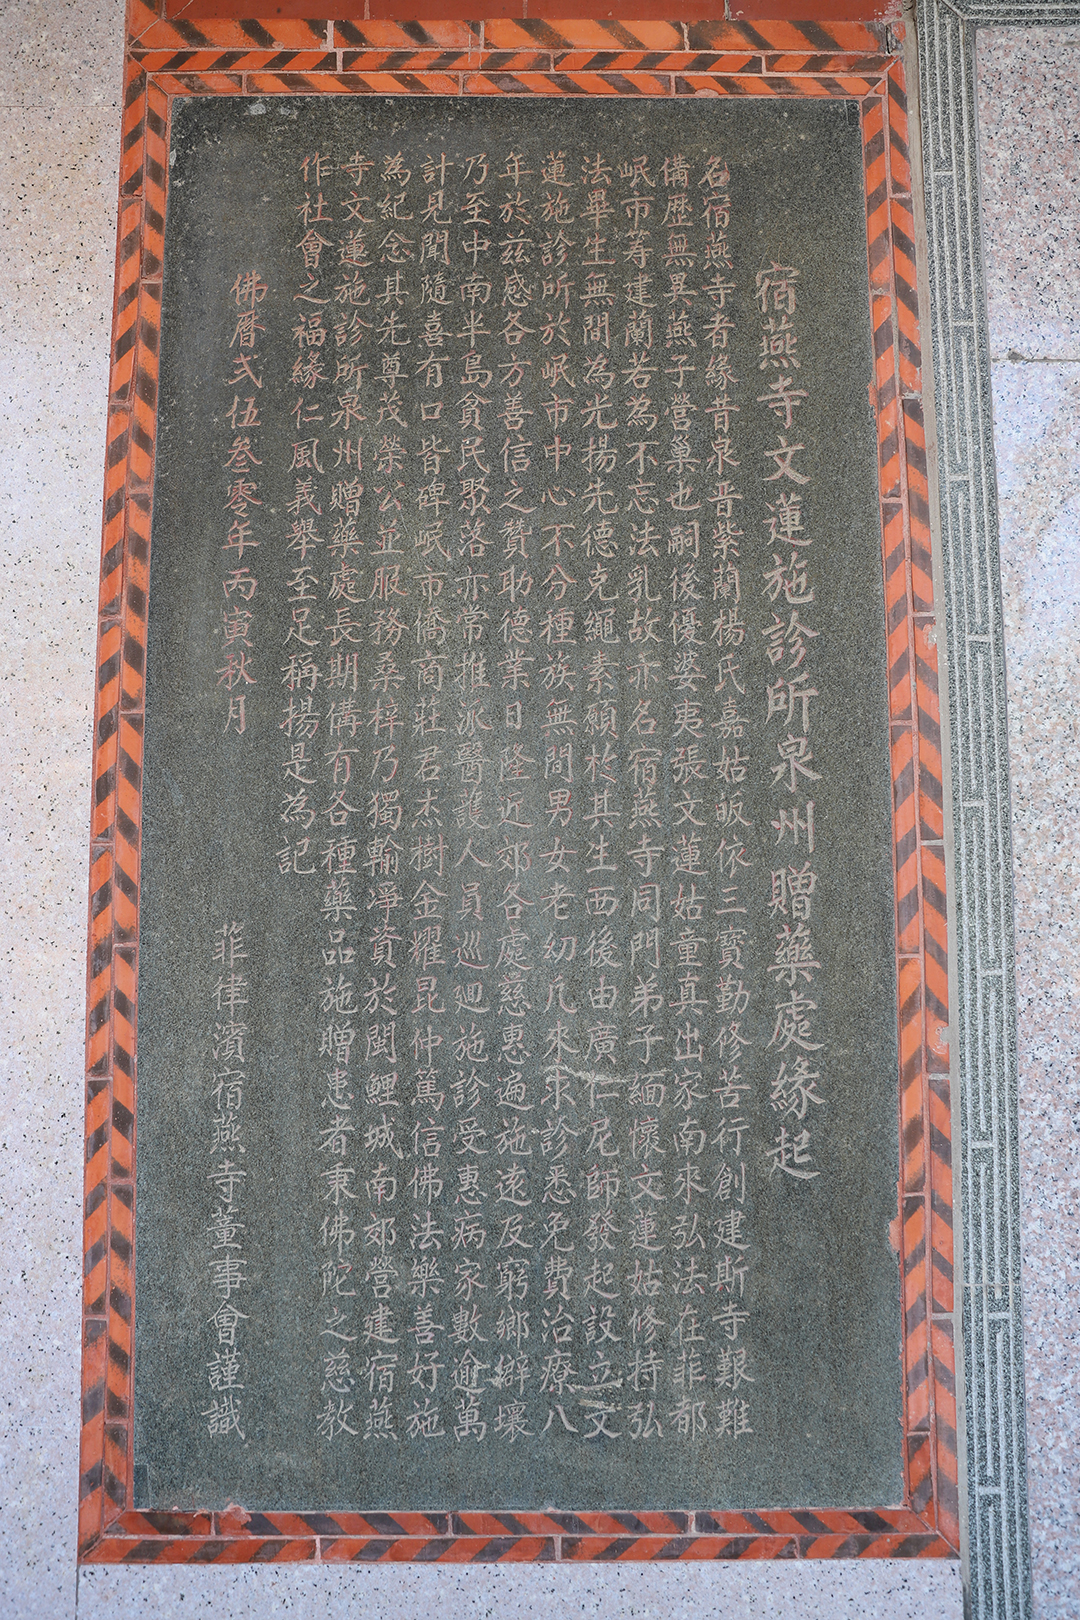 宿燕寺文蓮施診所泉州贈藥處緣起
名宿燕寺者緣昔泉晋紫蘭楊氏嘉姑皈依三寶勤修苦行創建斯寺艱難
備歷無異燕子營巢也嗣後優婆夷張文蓮姑童真出家南來弘法在菲都
岷市筹建蘭若為不忘法乳故亦名宿燕寺同門弟子緬懷文蓮姑修持弘
法畢生無間為光揚先德克繩素願於其生西後由廣仁尼師發起設立文
蓮施診所於岷市中心不分種族無間男女老幼凡來求診悉免費治療八
年於兹感各方善信之贊助德業日隆近郊各處慈惠遍施遠及窮鄉僻壤
乃至中南半島貧民聚落亦常推派醫護人員巡迴施診受惠病家數逾萬
計見聞隨喜有口皆碑岷市僑商莊君杰樹金耀昆仲篤信佛法樂善好施
為紀念其先尊茂榮公並服務桑梓乃獨輸凈資於閩鯉城南郊營建宿燕
寺文蓮施診所泉州贈藥處長期備有各種藥品施贈患者秉佛陀之慈教
作社會之福緣仁風義舉至足稱揚是為記
佛曆弍伍叁零年丙寅秋月
菲律濱宿燕寺董事會謹識